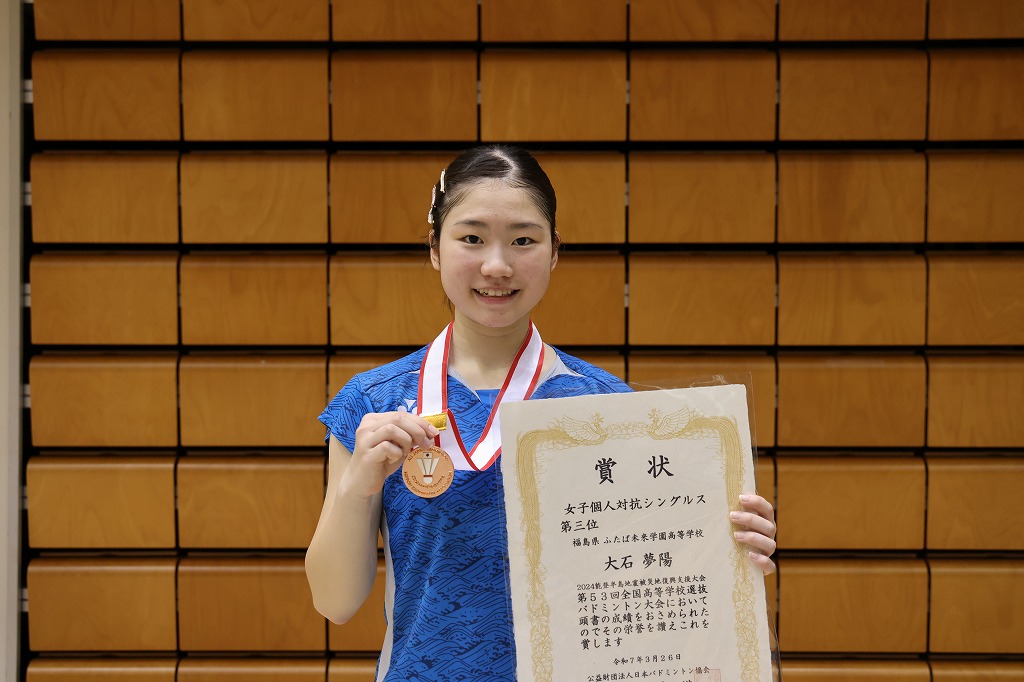 賞状
女子個人対抗シングルス
第三位
福島県 ふたば未来学園高等学校
大石 夢陽
2024能登半島地震被災地復興支援大会
第53回全国高等学校選抜
バドミントン大会において
頭書の成績をおさめられた
のでその栄誉を讃えこれを
賞します
令和7年3月26日
公益財団法人日本バドミントン協会